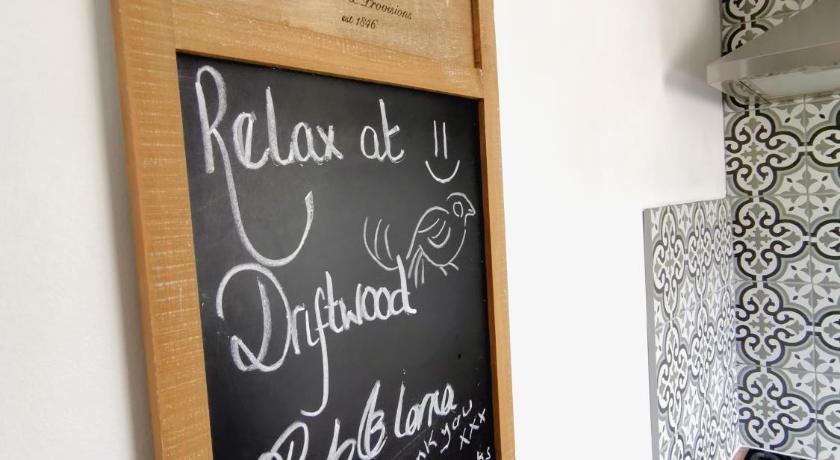 Provisions
est 1846
Relax at
Driftwood
& Lorna
you
xxx